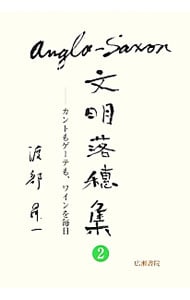 Anglo-Saxon
文明落穗集
――カントもゲーテも、ワインを毎日
渡部昇一
2
広瀬書院